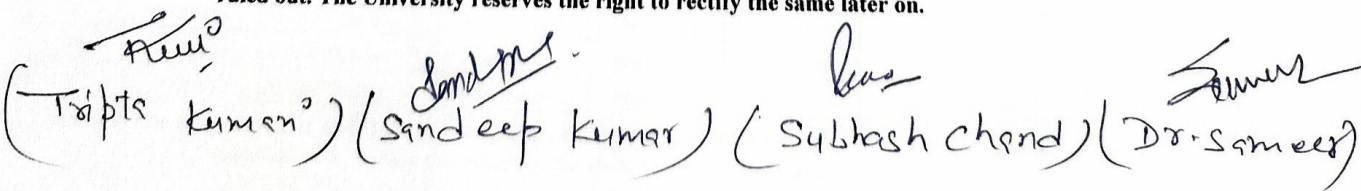 ruled out. The University reserves the right to rectify the same later on.
(Tripta Kumari) (Sandeep Kumar) (Subhash Chand) (Dr. Sameer)